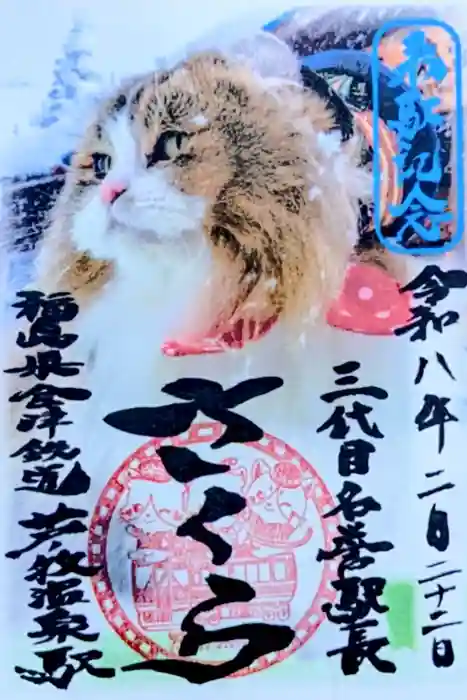 来駅記念
令和八年二月二十二日
三代目名誉駅長
さくら
福島県会津鉄道
芦ノ牧温泉駅